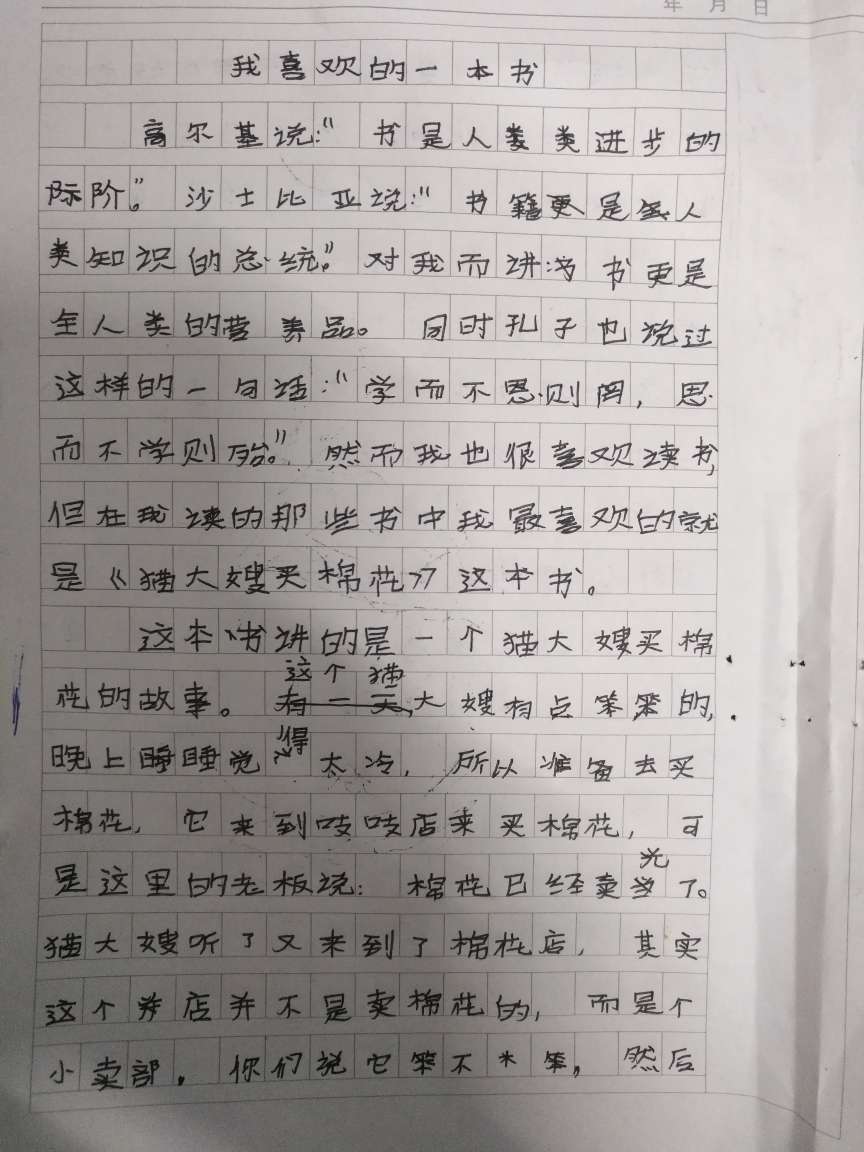 年 月 日
我喜欢的一本书
高尔基说：“书是人类类进步的
际阶”。沙士比亚说：“书籍更是全人
类知识的总统”。对我而讲书更是
全人类的营养品。同时孔子也说过
这样的一句话：“学而不思则罔，思
而不学则殆。”然而我也很喜欢读书，
但在我读的那些书中我最喜欢的就
是《猫大嫂买棉花》这本书。
这本书讲的是一个猫大嫂买棉
花的故事。这个猫大嫂有点笨笨的，
晚上睡睡觉得太冷，所以准备去买
棉花，它来到吱吱店来买棉花，可
是这里的老板说：棉花已经卖光了。
猫大嫂听了又来到了棉花店，其实
这个店并不是卖棉花的，而是个
小卖部。你们说它笨不笨。然后